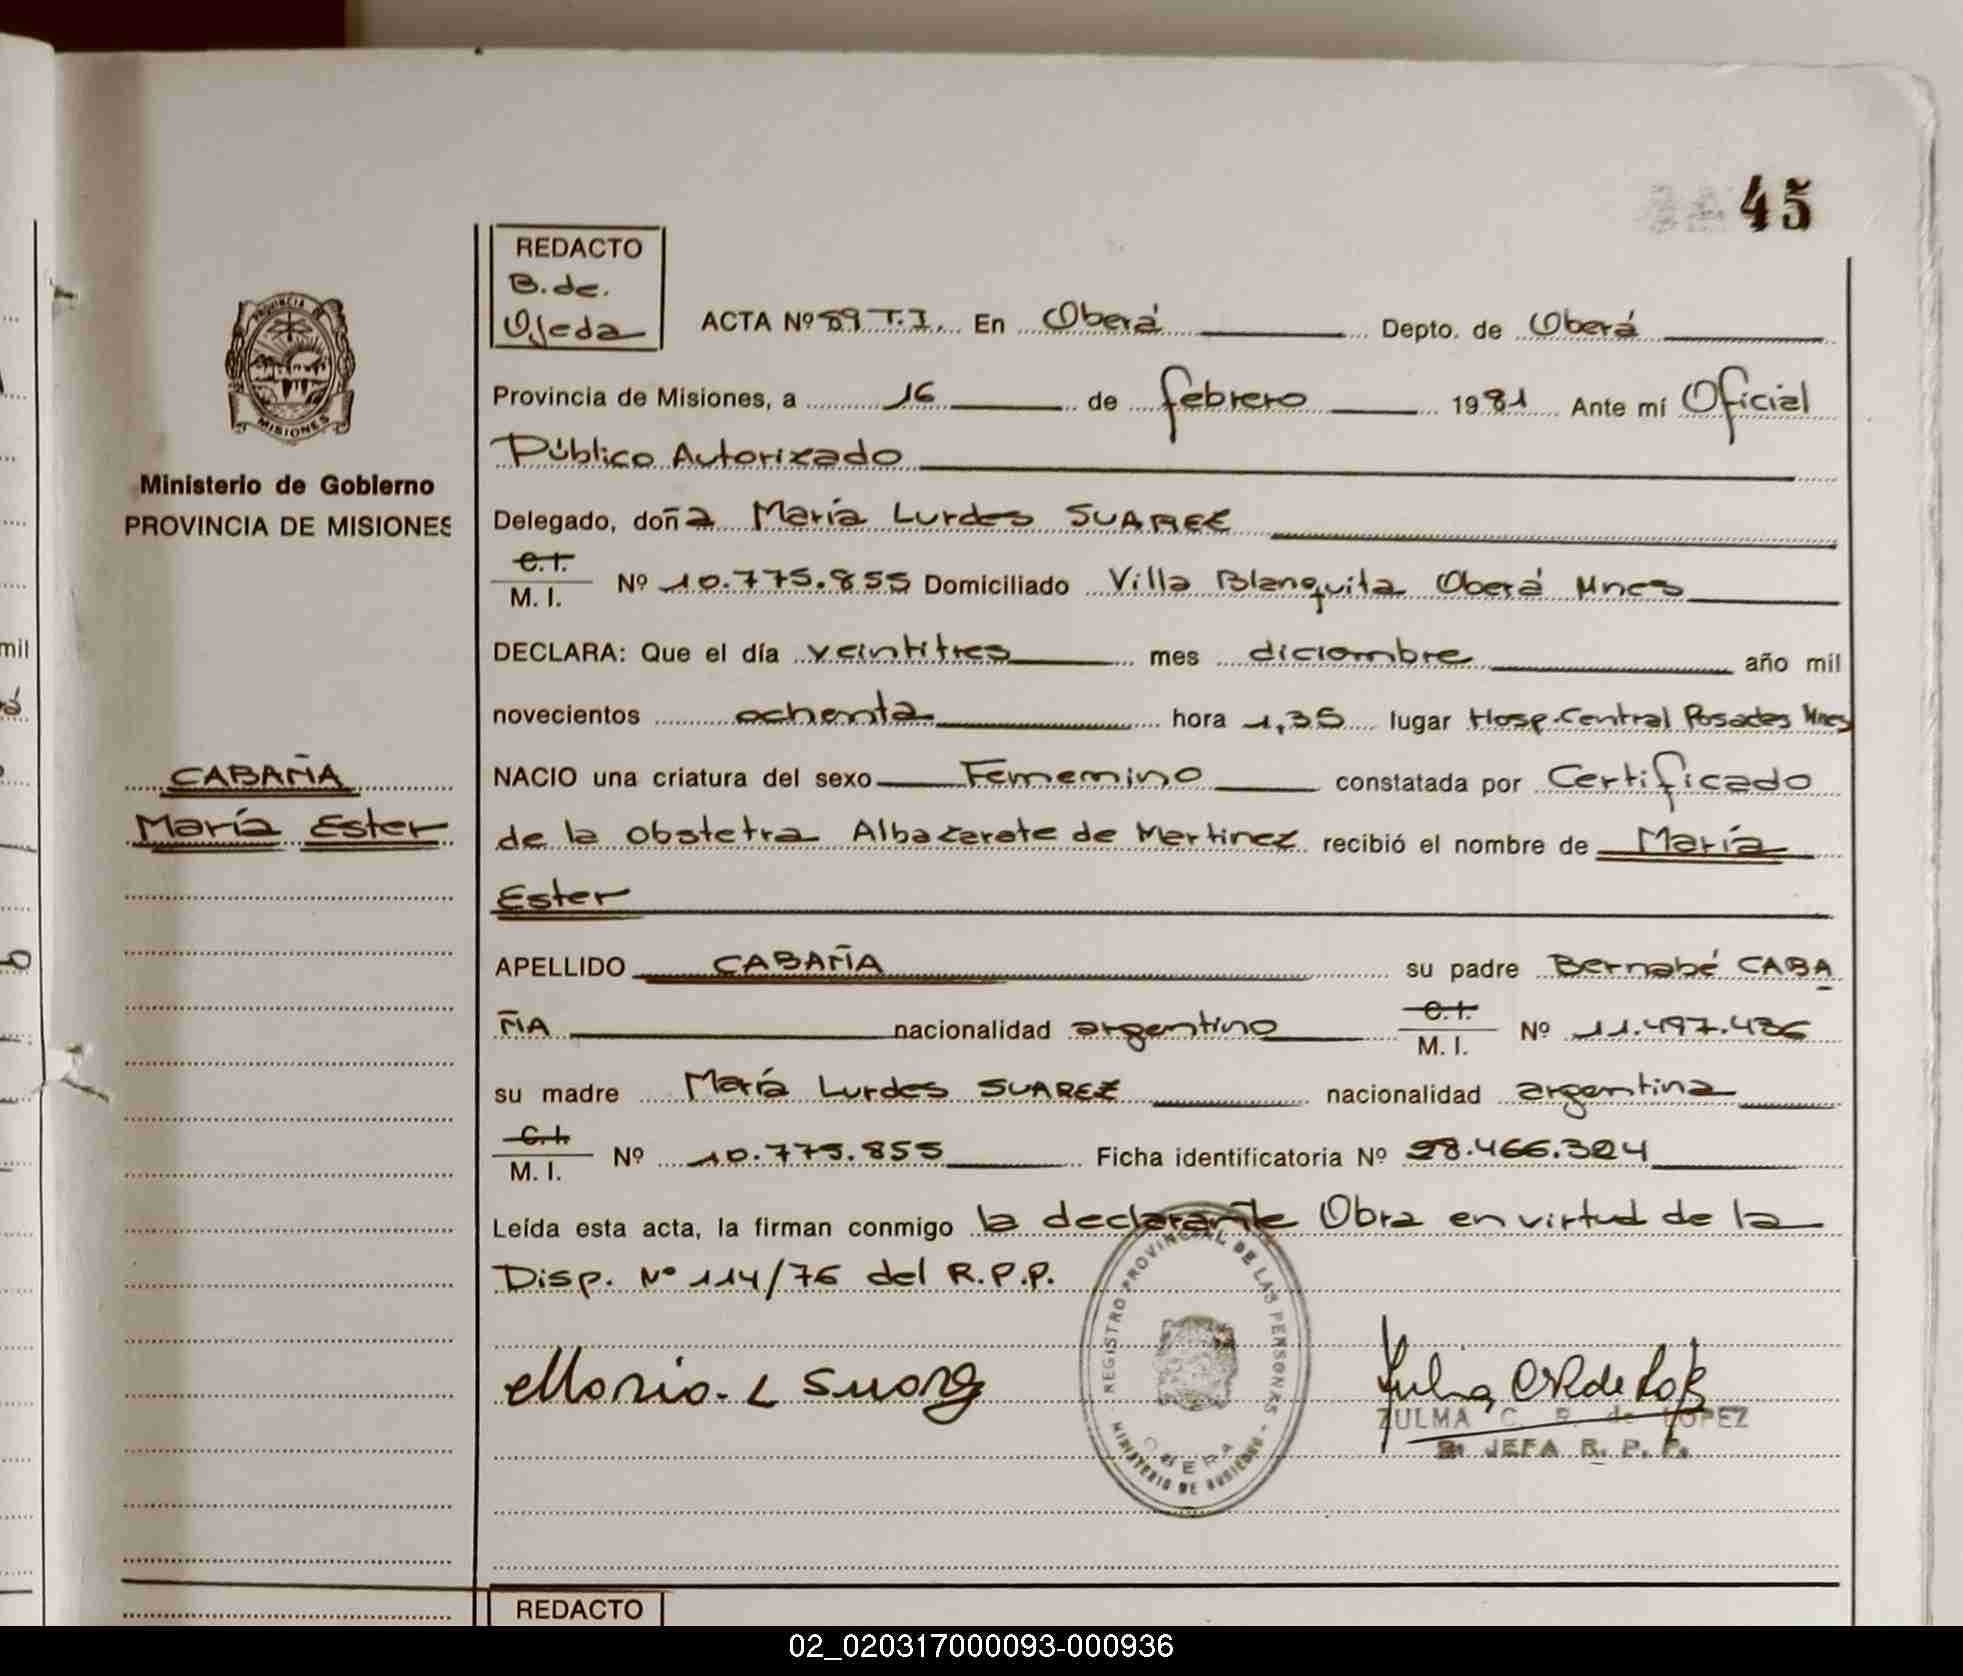 45
REDACTO
B. de.
Ojeda
ACTA Nº 89 T.I. En Oberá Depto. de Oberá
Provincia de Misiones, a 16 de febrero 1981 Ante mí Oficial
Público Autorizado
Ministerio de Gobierno
PROVINCIA DE MISIONES
Delegado, doña María Lurdes SUAREZ
C.I.
M. I. Nº 10.775.855 Domiciliado Villa Blanquita Oberá Mnes
DECLARA: Que el día veintitres mes diciembre año mil
novecientos ochenta hora 1,35 lugar Hosp. Central Posadas Mnes
CABAÑA
María Ester
NACIO una criatura del sexo Femenino constatada por Certificado
de la obstetra Albazarate de Martinez recibió el nombre de María
Ester
APELLIDO CABAÑA su padre Bernabé CABA
ÑA nacionalidad argentino C.I. M. I. Nº 11.497.436
su madre María Lurdes SUAREZ nacionalidad argentina
C.I.
M. I. Nº 10.775.855 Ficha identificatoria Nº 28.466.324
Leída esta acta, la firman conmigo la declarante Obra en virtud de la
Disp. Nº 114/76 del R.P.P.
REGISTRO PROVINCIAL DE LAS PERSONAS
MINISTERIO DE GOBIERNO
OBERA
Maria. L Suarez
ZULMA C. R. de LOPEZ
JEFA R. P. P.
REDACTO
mil
02_020317000093-000936